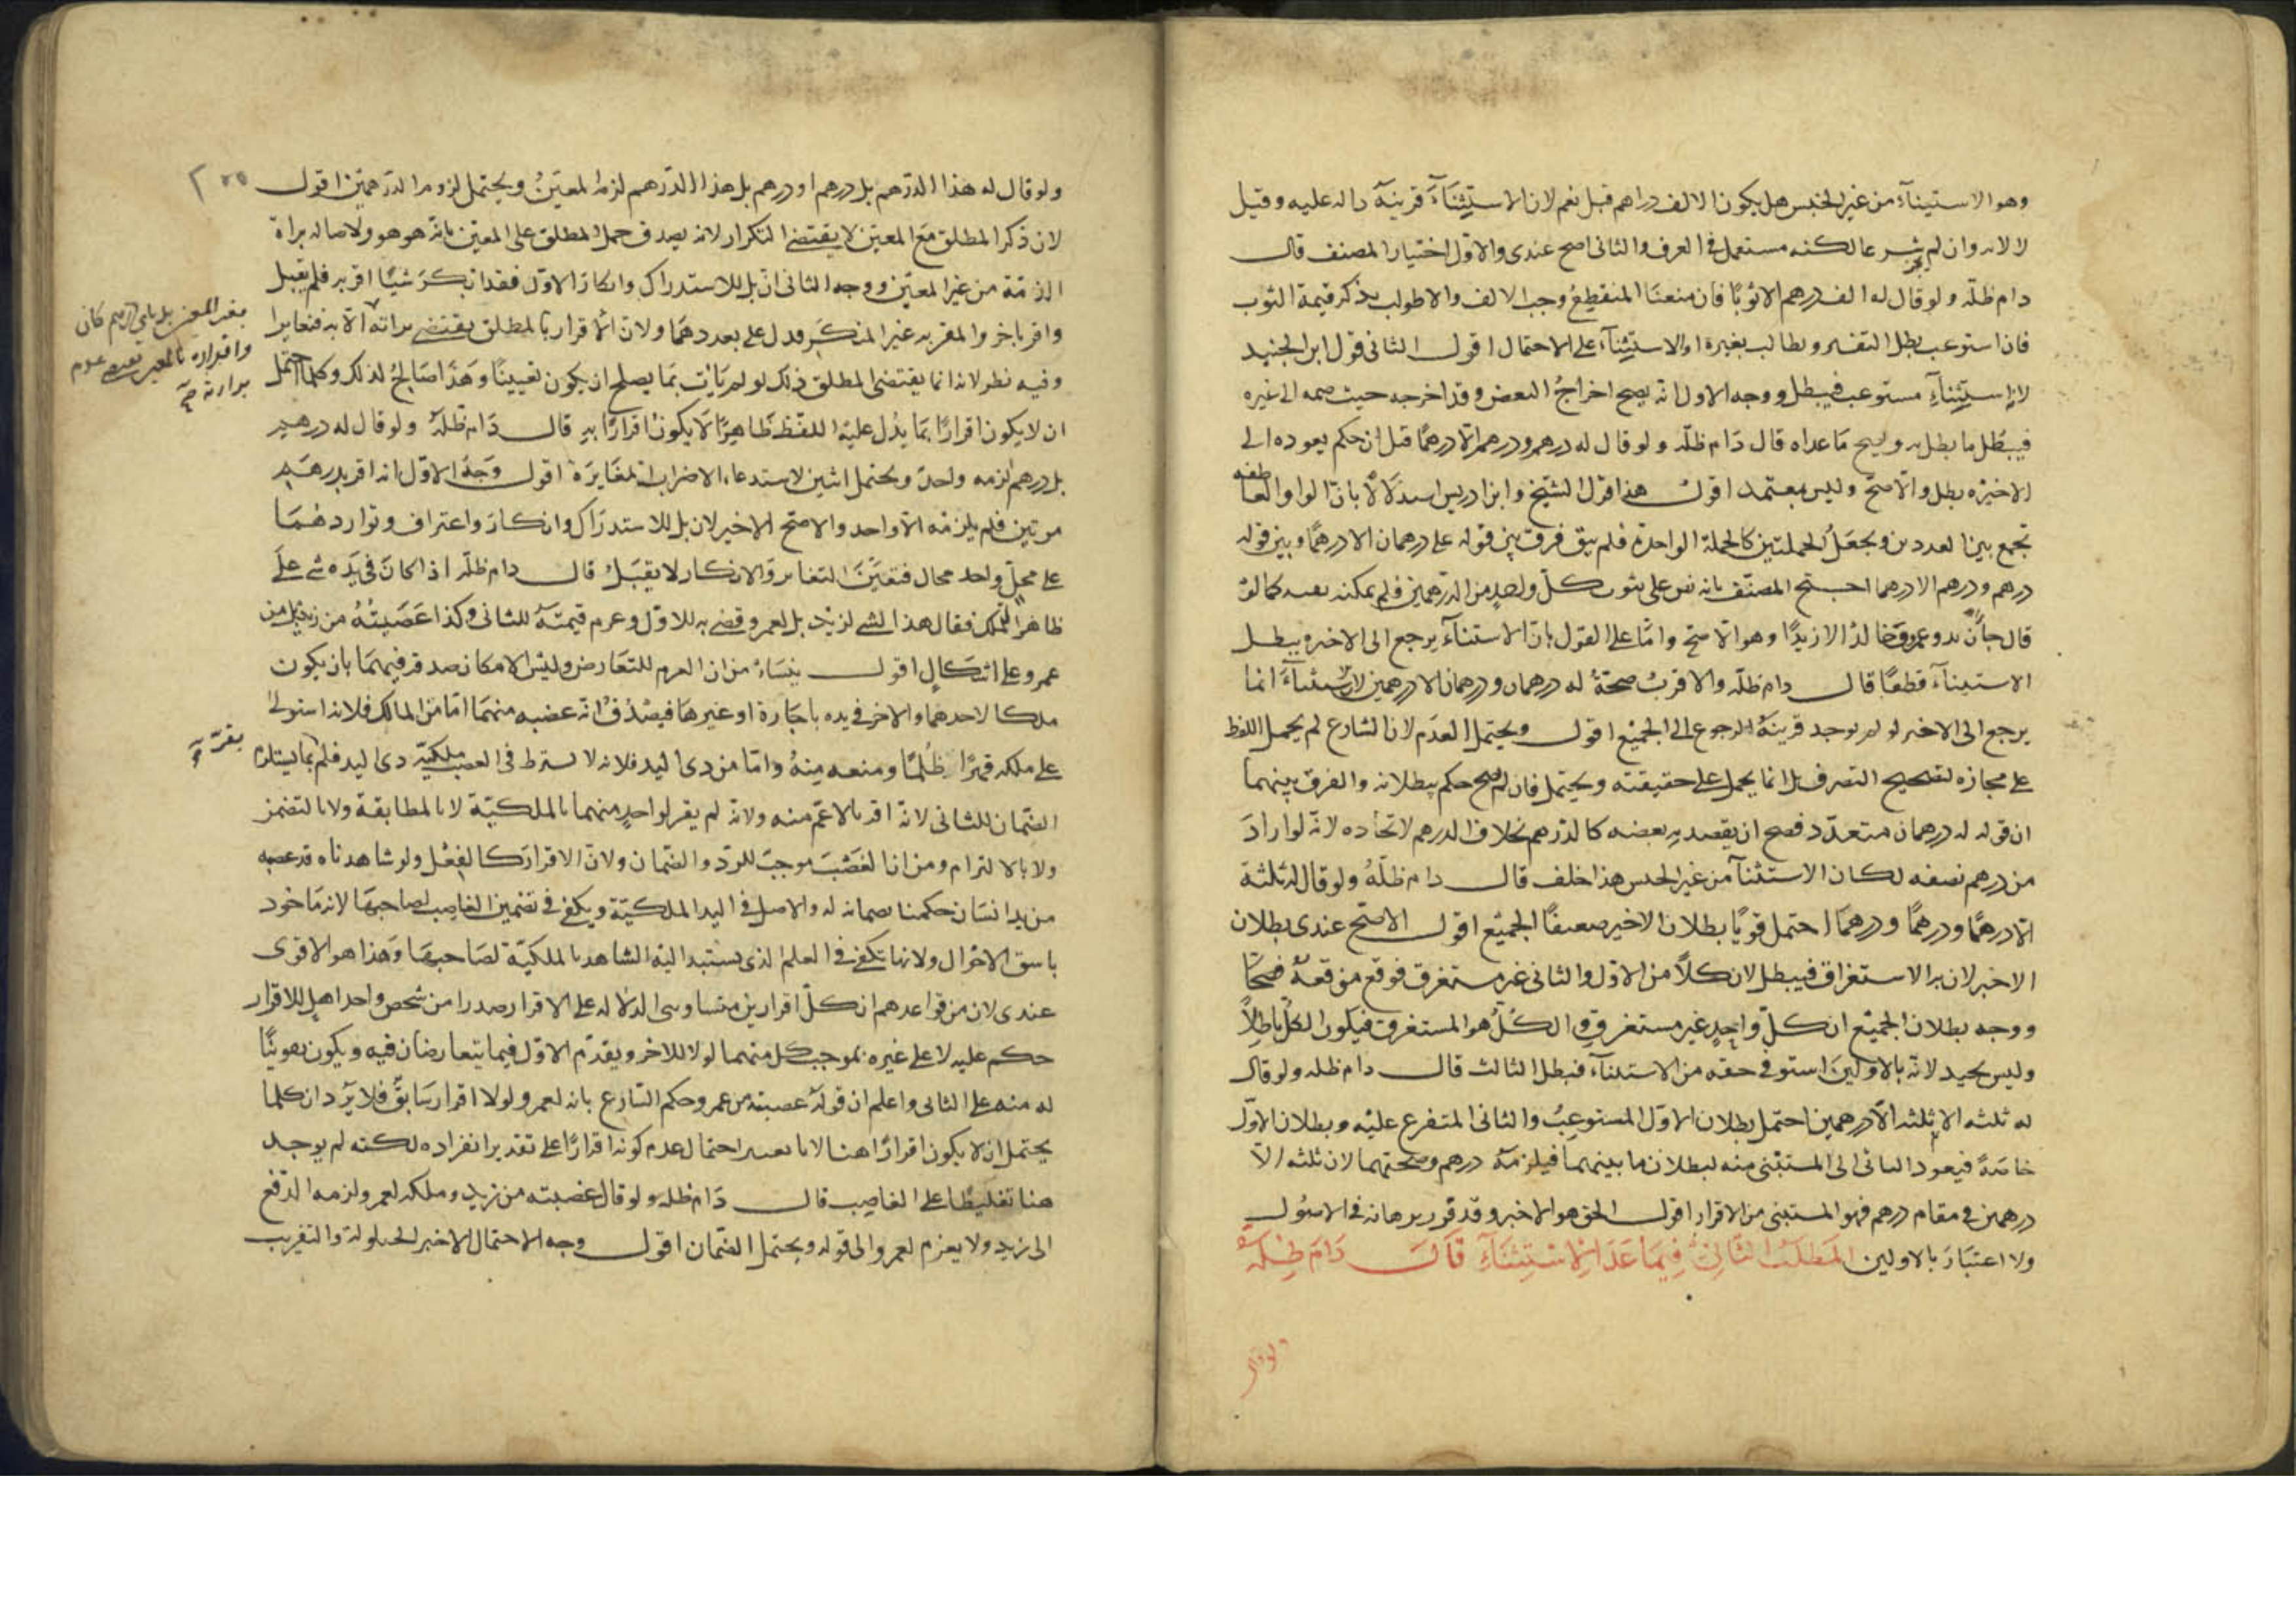 وهو الاستيناء من غير الجنس هل يكون الالف دراهم قيل نعم لان الاستثناء قرينة داله عليه وقيل
لا لانه وان لم يجز شرعا لكنه مستعمل في العرف والثاني اصح عندى والاول اختيار المصنف قال
دام ظله ولو قال له الف درهم الا ثوبا فان منعنا المنقطع وجب الالف والا طولب بذكر قيمة الثوب
فان استوعب بطل التفسير وطالب بغيره او الاستثناء على الاحتمال اقول الثاني قول ابن الجنيد
لانه استثناء مستوعب فيبطل ووجه الاول انه يصح اخراج البعض وقد اخرجه حيث ضمه الى غيره
فيبطل ما بطل به ويصح ما عداه قال دام ظله ولو قال له درهم ودرهم الا درهما قيل ان حكم بعوده الى
الاخيرة بطل والا صح وليس بمعتمد اقول هذا قول الشيخ وابن ادريس استدلالا بان الواو العاطفه
تجمع بين العددين وبجعل الجملتين كالجملة الواحدة فلم يبق فرق بين قوله على درهمان الا درهما وبين قوله
درهم ودرهم الا درهما احتج المصنف بانه نص على ثبوت كل واحد من الدرهمين فلم يمكنه نفيه كما لو
قال جاءنى زيد وعمرو وخالد الا زيدا وهو الاصح واما على القول بان الاستثناء يرجع الى الاخير ويبطل
الاستيناء قطعا قال دام ظله والاقرب صحة له درهمان ودرهمان الا درهمين لان الاستثناء انما
يرجع الى الاخير لو لم توجد قرينة الرجوع الى الجميع اقول ويحتمل العدم لان الشارع لم يحمل اللفظ
على مجازه لتصحيح التصرف بل انما يحمل على حقيقته ويحتمل فان لم يصح حكم ببطلانه والفرق بينهما
ان قوله له درهمان متعدد فصح ان يقصد به بعضه كالدرهم بخلاف الدرهم لاتحاده لانه لو اراد
من درهم نصفه لكان الاستثناء من غير الجنس هذا خلف قال دام ظله ولو قال له ثلثة
الا درهما ودرهما ودرهما احتمل قويا بطلان الاخير وضعيفا الجميع اقول الاصح عندى بطلان
الاخير لان به الاستغراق فيبطل لان كلا من الاول والثاني غير مستغرق فوقع موقعه صحيحا
ووجه بطلان الجميع ان كل واحد غير مستغرق والكل هو المستغرق فيكون الكل باطلا
وليس بجيد لانه بالاولين استوفى حقه من الاستثناء فبطل الثالث قال دام ظله ولو قال
له ثلثه الا ثلثه الا درهمين احتمل بطلان الاول المستوعب والثاني المتفرع عليه وبطلان الاول
خاصة فيعود الثاني الى المستثنى منه لبطلان ما بينهما فيلزمه درهم وصحتهما لان ثلثه الا
درهمين في مقام درهم فهو المستثنى من الاقرار اقول الحق هو الاخير وقد قرر برهانه في الاصول
ولا اعتبار بالاولين المطلب الثاني فيما عدا الاستثناء قال دام ظله
ولو قال
ولو قال له هذا الدرهم بل درهم او درهم بل هذا الدرهم لزمه المعين ويحتمل لزوم الدرهمين اقول
لان ذكر المطلق مع المعين لا يقتضى التكرار لانه يصدق حمل المطلق على المعين بانه هو هو ولاصاله براة
الذمة من غير المعين ووجه الثاني ان بل للاستدراك وانكار الاول فقد انكر شيئا اقر به فلم يقبل
واقر باخر والمقر به غير المنكر فدل على تعددهما ولان الاقرار بالمطلق يقتضى براته الا به فتغايرا
وفيه نظر لانه انما يقتضى المطلق ذلك لو لم يات بما يصلح ان يكون تعيينا وهذا صالح لذلك وكلما احتمل
ان لا يكون اقرارا بما يدل عليه اللفظ ظاهرا لا يكون اقرارا به قال دام ظله ولو قال له درهم
بل درهم لزمه واحد ويحتمل اثنين لاستدعاء الاضراب المغايرة اقول وجه الاول انه اقر بدرهم
مرتين فلم يلزمه الا واحد والاصح الاخير لان بل للاستدراك وانكار واعتراف وتواردهما
على محل واحد محال فتعين التغاير والانكار لا يقبل قال دام ظله اذا كان في يده شي على
ظاهر الملك فقال هذا الشي لزيد بل لعمرو قضى به للاول وغرم قيمته للثاني وكذا غصبته من زيد بل من
عمرو على اشكال اقول ينشاء من ان الغرم للتعارض وليس لامكان صدقه فيهما بان يكون
ملكا لاحدهما والاخر في يده باجارة او غيرها فيصدق انه غصبه منهما اما من المالك فلانه استولى
على ملكه قهرا ظلما ومنعه منه واما من ذى اليد فلانه لا يشترط في الغصب ملكية ذى اليد فلم بما يستلزم
الضمان للثاني لانه اقر بالاعم منه ولانه لم يقر لواحد منهما بالملكية لا بالمطابقة ولا بالتضمن
ولا بالالتزام ومن ان الغصب موجب للرد والضمان ولان الاقرار كالفعل ولو شاهدناه قد غصبه
من يد انسان حكمنا بضمانه له والاصل في اليد الملكية ويكفى في تضمين الغاصب لصاحبها لانه ماخوذ
باشق الاحوال ولانها تكفى في العلم الذى يستند اليه الشاهد بالملكية لصاحبها وهذا هو الاقوى
عندى لان من قواعدهم ان كل اقرارين متساوى الدلاله على الاقرار صدرا من شخص واحد اهل للاقرار
حكم عليه لا على غيره بموجب كل منهما لولا للاخر ويقدم الاول فيما يتعارضان فيه ويكون تفويتا
له منه على الثاني واعلم ان قوله غصبته من عمرو حكم الشارع بانه لعمرو لولا اقرار سابق فلا يرد ان كلما
يحتمل ان لا يكون اقرارا هنا لانا نعتبر احتمال عدم كونه اقرارا على تقدير انفراده لكنه لم يوجد
هنا تغليظا على الغاصب قال دام ظله ولو قال غصبته من زيد وملكه لعمرو لزمه الدفع
الى زيد ولا يغرم لعمرو الى قوله ويحتمل الضمان اقول وجه الاحتمال الاخير الحيلولة والتقريب